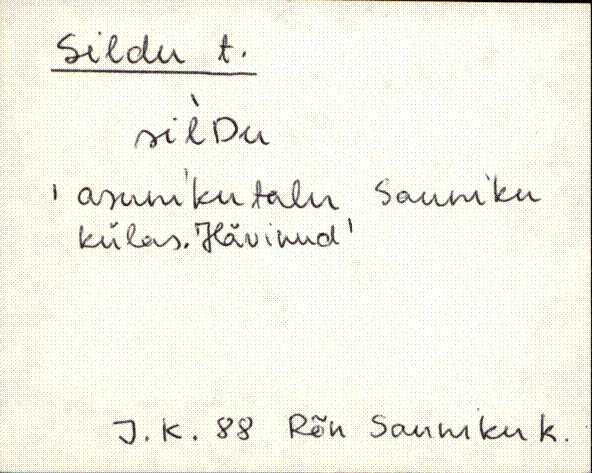 Sildu t.
sil̀Du
'asunikutalu Sauniku
külas. Hävinud'
J.K. 88 Rõn Sauniku k.